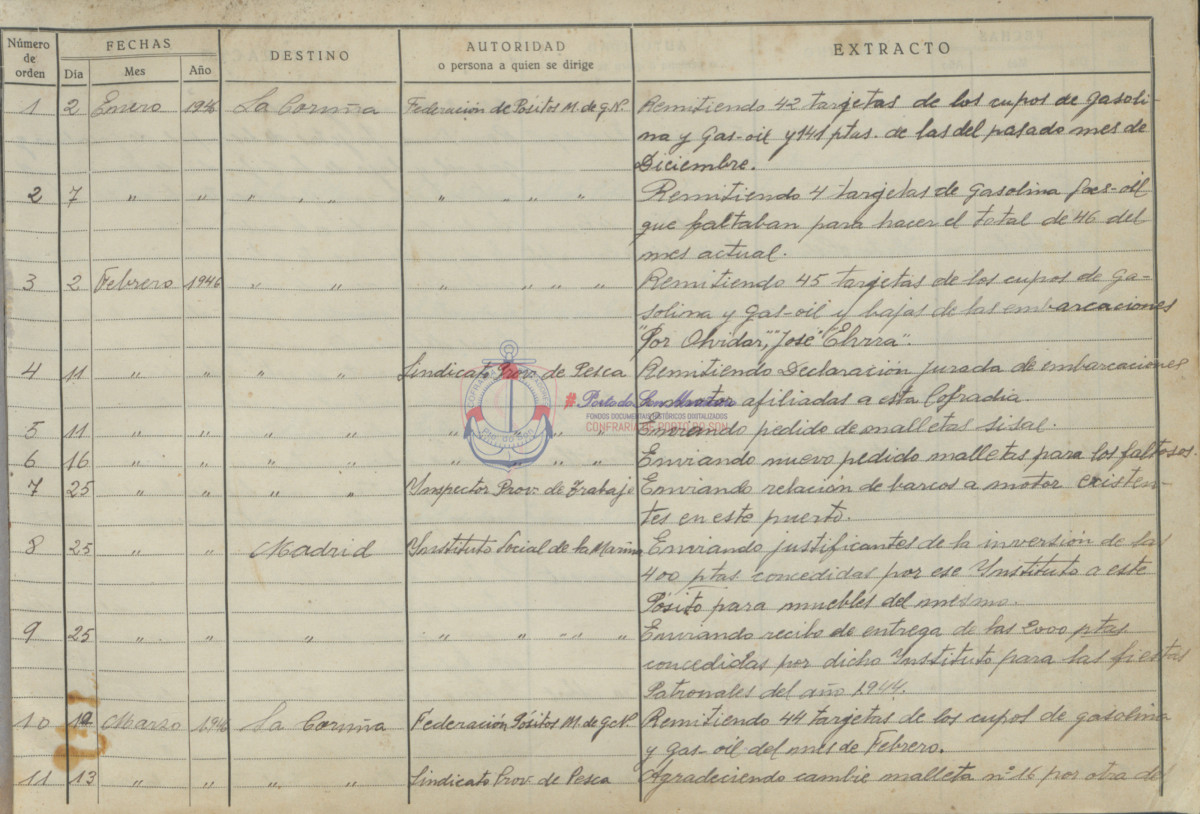 Número de orden FECHAS DESTINO AUTORIDAD o persona a quien se dirige EXTRACTO
Dia Mes Año
1 2 Enero 1946 La Coruña Federación de Pósitos M. de G.N. Remitiendo 42 targetas de los cupos de gasoli-
na y gas-oil y 141 ptas. de las del pasado mes de
Diciembre.
2 7 " " " " " " " " " Remitiendo 4 targetas de gasolina gas-oil
que faltaban para hacer el total de 46 del
mes actual.
3 2 Febrero 1946 " " " " " " Remitiendo 45 targetas de los cupos de ga-
solina y gas-oil y bajas de las embarcaciones
"Por Olvidar," "José" "Elvira".
4 11 " " " " Sindicato Prov. de Pesca Remitiendo Declaración jurada de embarcaciones
a Motor afiliadas a esta Cofradia.
# Porto do Son
FONDOS DOCUMENTAIS HISTÓRICOS DIXITALIZADOS
CONFRARÍA DE PORTO DO SON
5 11 " " " " " " " " Enviando pedido de malletas sisal.
6 16 " " " " " " " " Enviando nuevo pedido malletas para los faltosos.
7 25 " " " " Ynspector Prov. de Trabajo Enviando relación de barcos a motor existen-
tes en este puerto.
8 25 " " Madrid Ynstituto Social de la Marina Enviando justificantes de la inversión de las
400 ptas concedidas por ese Ynstituto a este
Pósito para muebles del mesmo.
9 25 " " " " " " " Enviando recibo de entrega de las 2000 ptas
concedidas por dicho Ynstituto para las fiestas
Patronales del año 1944.
10 Marzo 1946 La Coruña Federación Pósitos M. de G.N. Remitiendo 44 targetas de los cupos de gasolina
y gas-oil del mes de Febrero.
11 13 " " " " Sindicato Prov. de Pesca Agradeciendo cambie malleta nº 16 por otra del